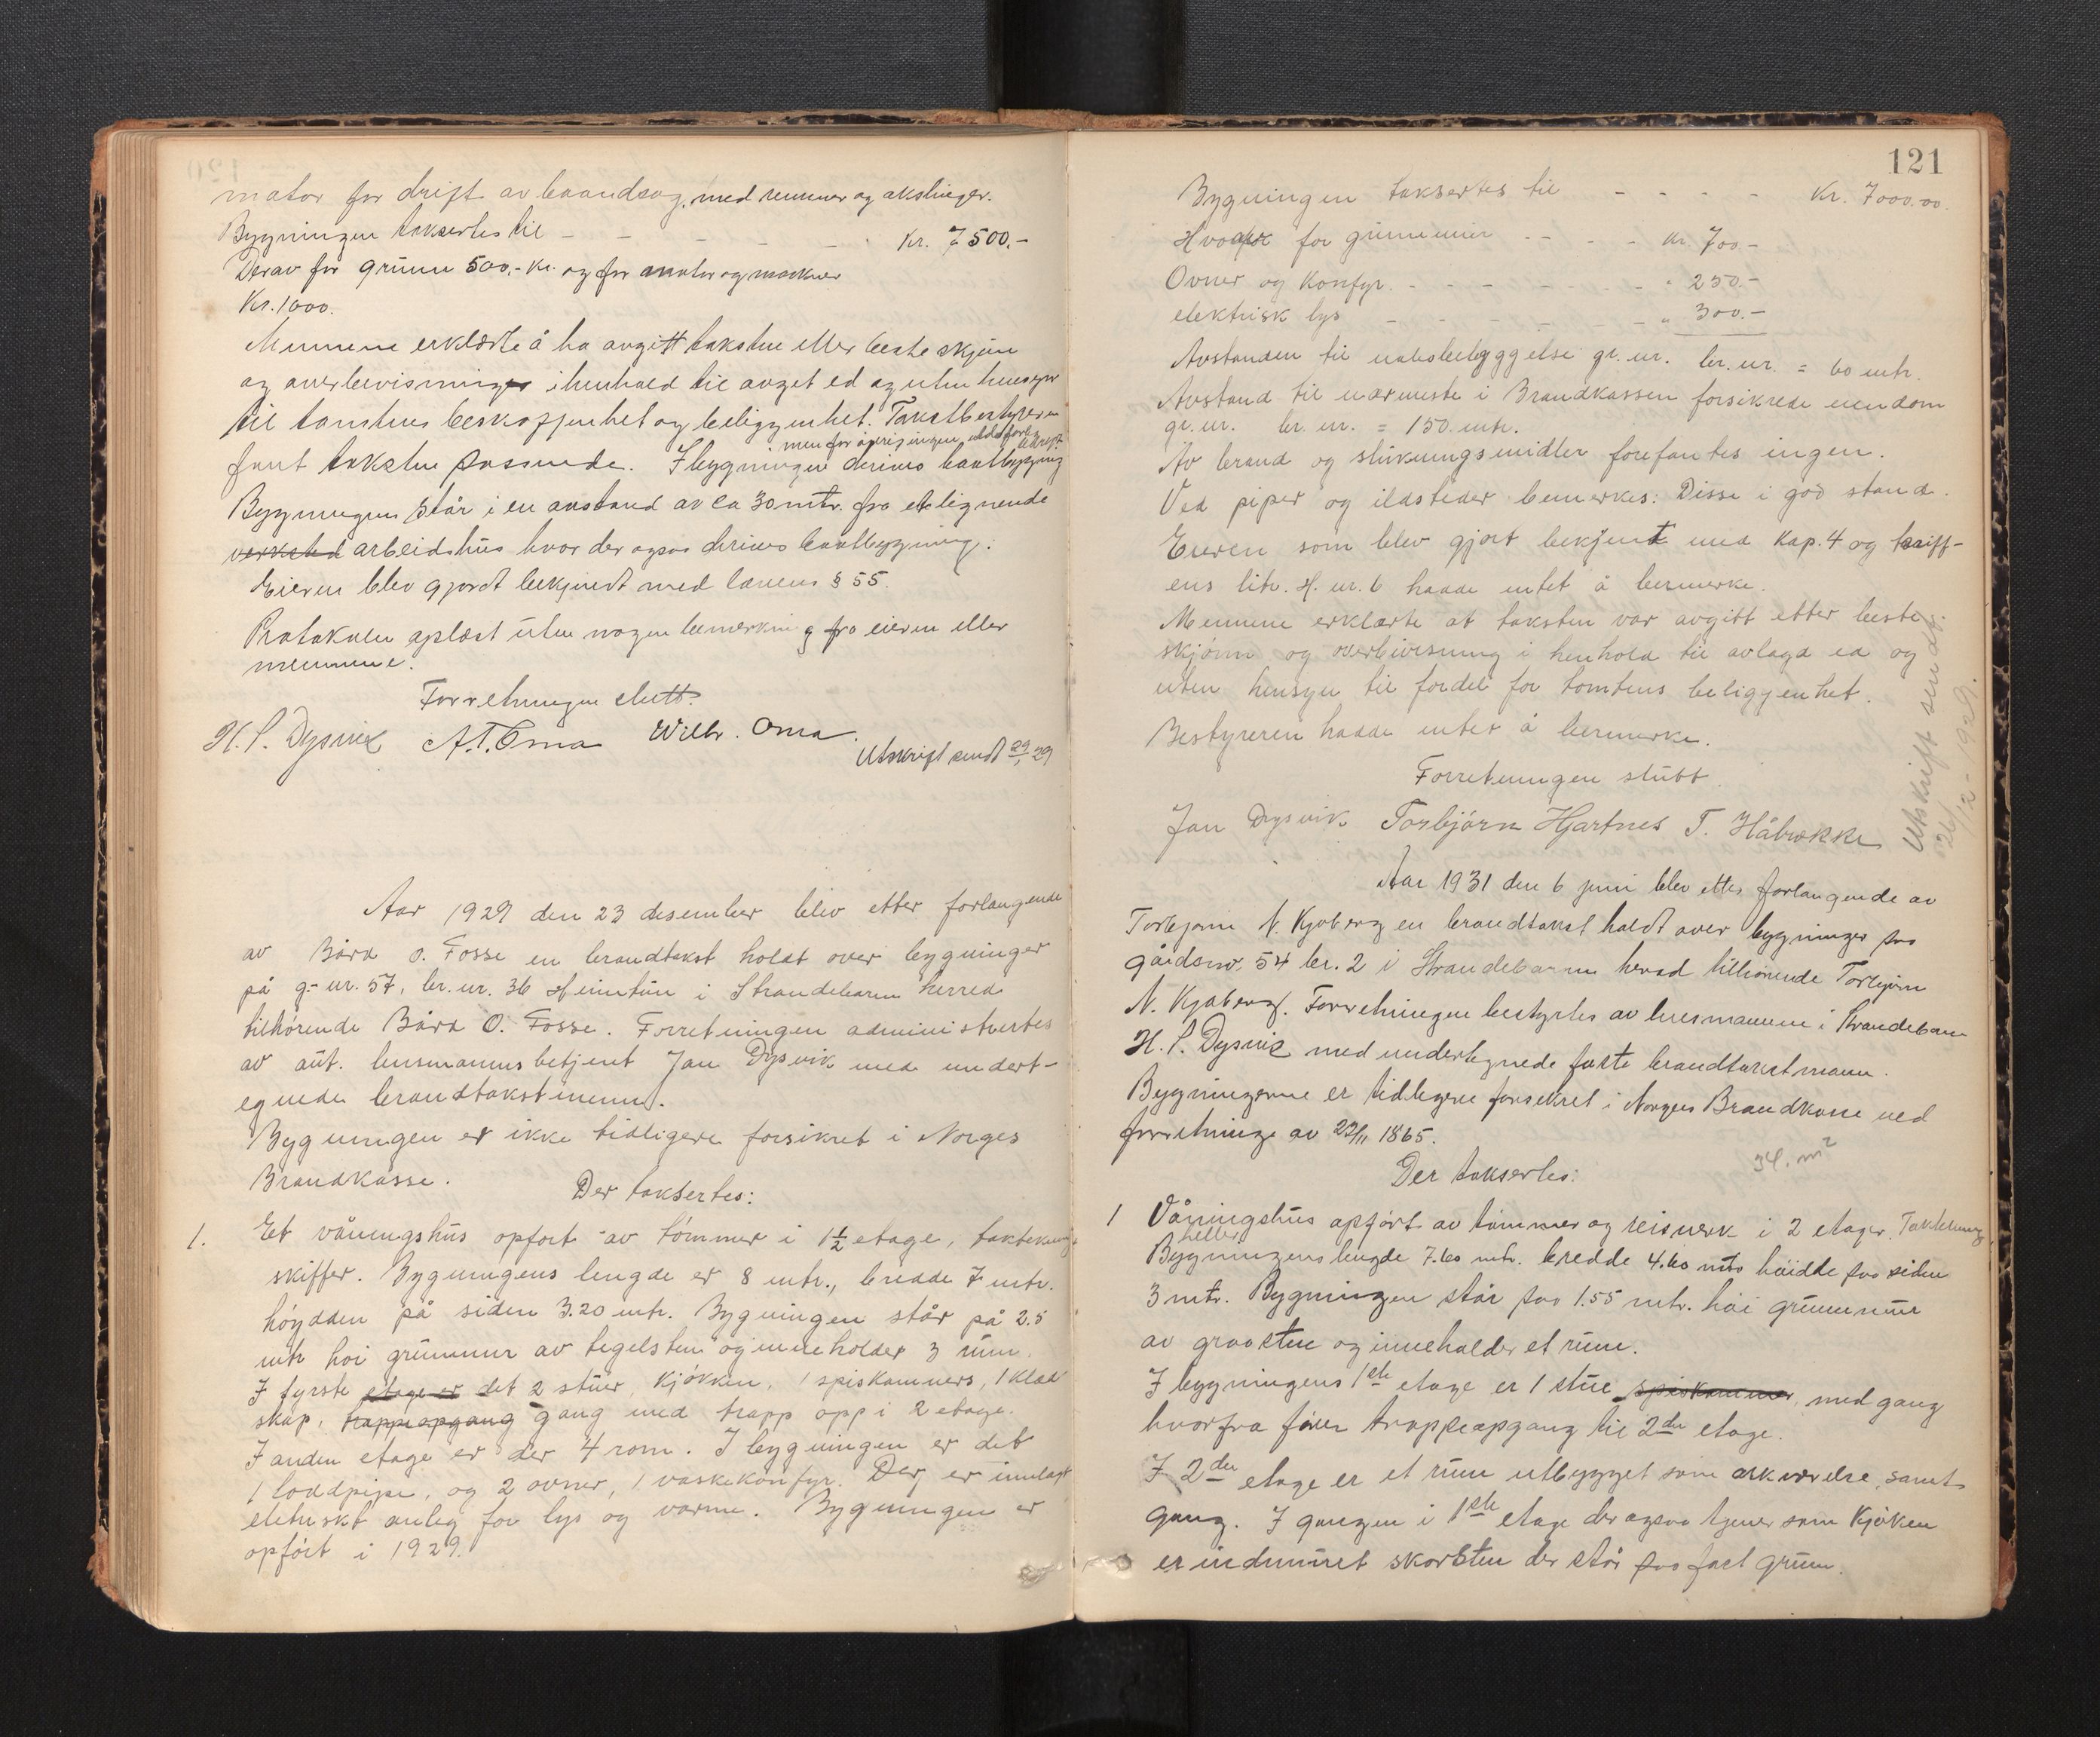 motor for drift av baandsag, med remmer og akslinger.
Bygningen takseres til - - - - - - Kr. 7500.-
Derav for grunn 500,- kr. og for motor og maskiner
Kr. 1000.
Mennene erklærte å ha avgitt taksten efter beste skjøn
og overbevisning i henhold til avget ed og uten hensyn
til tomtens beskaffenhet og beliggenhet. Takstbestyreren
fant taksten passende. I bygningen drives baatbygging
men for øvrig ingen ildsfarlig bedrift.
Bygningen står i en avstand av ca 30 mtr. fra et lignende
verksted arbeidshus hvor der ogsaa drives baatbygning.
Eieren blev gjordt bekjendt med lovens § 55.
Protokolen oplæst uten nogen bemerkning fra eieren eller
mennene.
Forretningen slutt.
H. S. Dysvik A. T. Oma Wilh. Oma.
Utskrift sendt 29/1 29
Aar 1929 den 23 desember blev etter forlangende
av Bård O. Fosse en brandtakst holdt over bygninger
på g.-nr. 57, br. nr. 36 Heimtun i Strandebarm herred
tilhørende Bård O. Fosse. Forretningen administrertes
av aut. lensmannsbetjent Jan Dysvik med undert-
egnede brandtakstmenn.
Bygningen er ikke tidligere forsikret i Norges
Brandkasse.
Der taksertes:
1. Et våningshus opført av tömmer i 1½ etage, taktekning
skiffer. Bygningens lengde er 8 mtr., bredde 7 mtr.
höydden på siden 3.20 mtr. Bygningen står på 2.5
mtr höi grunnmur av tegelsten og inneholder 3 rum.
I fyrste etage er det 2 stuer, kjökken, 1 spiskammers, 1 klæd
skap, trappeopgang gang med trapp opp i 2 etage.
I anden etage er der 4 rom. I bygningen er det
1 loddpipe, og 2 ovner, 1 vaskekomfyr. Der er innlagt
eletriskt anleg for lys og varme. Bygningen er
opfört i 1929.
121
Bygningen taksertes til - - - - Kr. 7000.00
Hvorav for grunnmur - - - - kr 700.-
Ovner og Komfyr. - - - - - - - " 250.-
elektrisk lys - - - - - - - " 300.-
Avstanden til nabobebyggelse gr. nr. br. nr. = 60 mtr.
Avstand til nærmeste i Brandkassen forsikrede eiendom
gr. nr. br. nr. = 150 mtr.
Av brand og slukningsmidler forefantes ingen.
Ved piper og ildsteder bemerkes: Disse i god stand.
Eieren som blev gjort bekjent med Kap. 4 og tariff-
ens litr. H. nr. 6 hadde intet å bemerke.
Mennene erklærte at taksten var avgitt etter beste
skjönn og overbevisning i henhold til avlagd ed og
uten hensyn til fordel for tomtens beliggenhet.
Bestyreren hadde intet å bemerke.
Forretningen slutt
Jan Dysvik Torbjörn Hjartnes T. Håbrekke
Utskrift sendt.
26/12-1929.
Aar 1931 den 6 juni blev etter forlangende av
Torbjørn N. Kjoberg en brandtakst holdt over bygninger paa
gårdsnr. 54 br. 2 i Strandebarm herred tilhørende Torbjørn
N. Kjoberg. Forretningen bestyrtes av lensmannen i Strandebarm
H. S. Dysvik med undertegnede faste brandtakstmenn.
Bygningerne er tidligere forsikret i Norges Brandkasse ved
forretning av 29/11 1865.
34. m²
Der taksertes:
1 Våningshus opført av tömmer og reisverk i 2 etager. Taktekning
heller
Bygningens lengde 7.60 mtr. bredde 4.60 mtr høidde paa siden
3 mtr. Bygningen står paa 1.55 mtr. høi grunnmur
av graasten og inneholder et rum.
I bygningens 1ste etage er 1 stue spiskammer, med gang
hvorfra fører trappeopgang til 2den etage.
I 2den etage er et rum utbygget som arkværelse, samt
gang. I gangen i 1ste etage der ogsaa tjener som kjøken
er indmuret skorsten der står paa fast grunn.